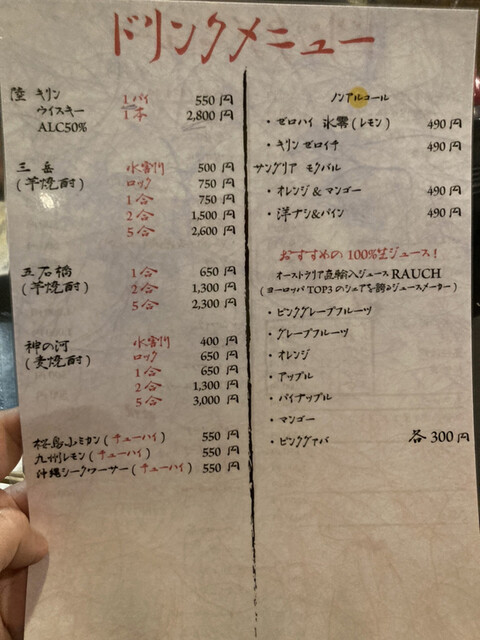 ドリンクメニュー
陸 キリン 1パイ 550円
ウイスキー 1本 2,800円
ALC50%
三岳 水割り 500円
(芋焼酎) ロック 750円
1合 750円
2合 1,500円
5合 2,600円
五石橋 1合 650円
(芋焼酎) 2合 1,300円
5合 2,300円
神の河 水割り 400円
(麦焼酎) ロック 650円
1合 650円
2合 1,300円
5合 3,000円
桜島小ミカン(チューハイ) 550円
九州レモン(チューハイ) 550円
沖縄シークワーサー(チューハイ) 550円
ノンアルコール
・ゼロハイ 氷零(レモン) 490円
・キリン ゼロイチ 490円
サングリア モクバル
・オレンジ&マンゴー 490円
・洋ナシ&パイン 490円
おすすめの100%生ジュース!
オーストラリア直輸入ジュースRAUCH
(ヨーロッパTOP3のシェアを誇るジュースメーカー)
・ピンクグレープフルーツ
・グレープフルーツ
・オレンジ
・アップル
・パイナップル
・マンゴー
・ピンクグァバ 各300円